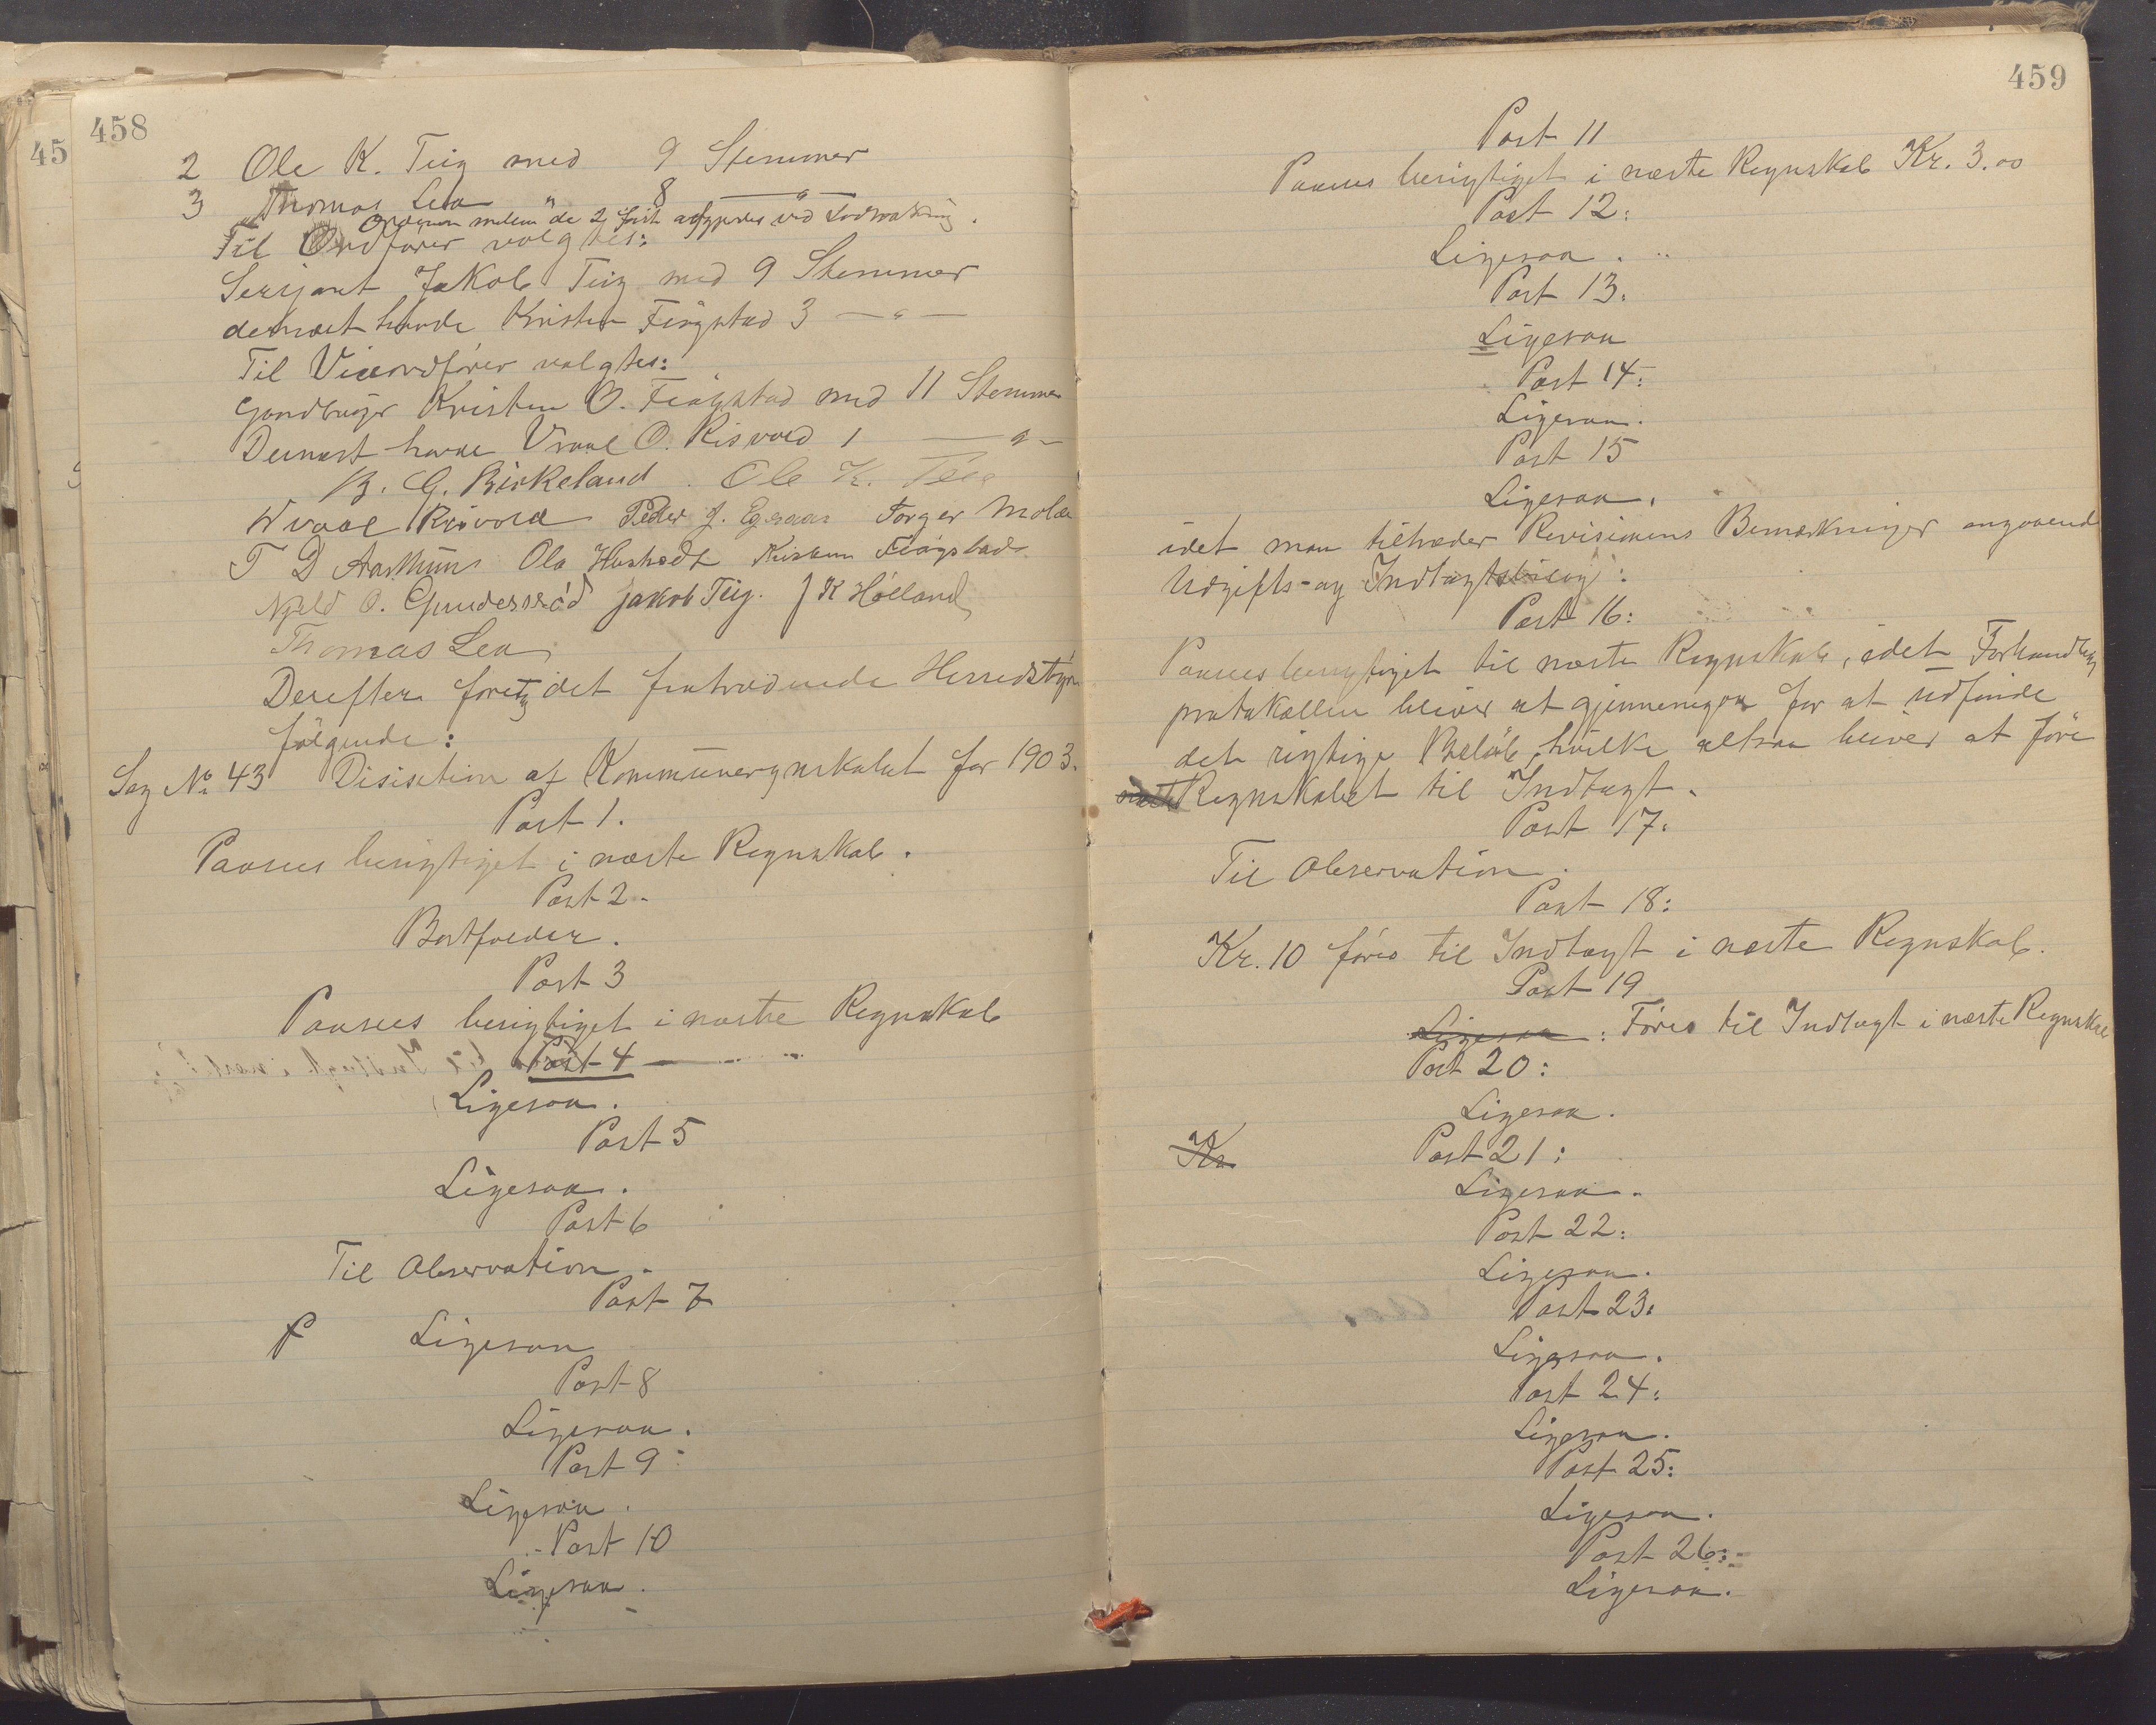 458
2 Ole K. Teig med 9 Stemmer
3 Thomas Lea " 8 — " —
Ordenen mellem de 2 först afgjordes ved Lodtrækning.
Til Ordfører valgtes:
Sersjant Jakob Teig med 9 Stemmer
dernæst havde Kristen Fiøgstad 3 — " —
Til Viceordfører valgtes:
Gaardbruger Kristen O. Fiøgstad med 11 Stemmer
Dernæst havde Vraal O. Risvold 1 — " —
B. G. Birkeland. Ole K. Teig
Wraal Risvold Peder J. Egeraas Torger Molde
T D Aasthuns Ola Kristen Fiøgstad
O. Gundersrød Jakob Teig. J K Hølland
Thomas Lea
Derefter foretog det fratrædende Herredstyre
følgende:
Sag No 43 Disisition af Kommuneregnskabet for 1903.
Post 1.
Paasees berigtiget i næste Regnskab.
Post 2.
Bortfalder.
Post 3
Paasees berigtiget i næstre Regnskab
Post 4 —
Ligesaa.
Post 5
Ligesaa.
Post 6
Til Observation.
Post 7
f Ligesaa
Post 8
Ligesaa.
Post 9:
Ligesaa.
Post 10
Ligesaa.
459
Post 11
Paasees berigtiget i næste Regnskab Kr. 3.00
Post 12:
Ligesaa.
Post 13:
Ligesaa
Post 14:
Ligesaa.
Post 15
Ligesaa,
idet man tiltræder Revisionens Bemærkninger angaaende
Udgifts- og Indtægtsbilag:
Post 16:
Paasees berigtiget til næste Regnskab, idet Forhandlings
protokollen bliver at gjennemgaa for at udfinde
det rigtige Beløb, hvilke altsaa bliver at føre
Regnskabet til Indtægt.
Post 17:
Til Observation.
Post 18:
Kr. 10 føres til Indtægt i næste Regnskab.
Post 19
Ligesaa: Føres til Indtægt i næste Regnskab
Post 20:
Ligesaa.
Kr. Post 21:
Ligesaa.
Post 22:
Ligesaa.
Post 23:
Ligesaa.
Post 24:
Ligesaa.
Post 25:
Ligesaa.
Post 26:
Ligesaa.
45